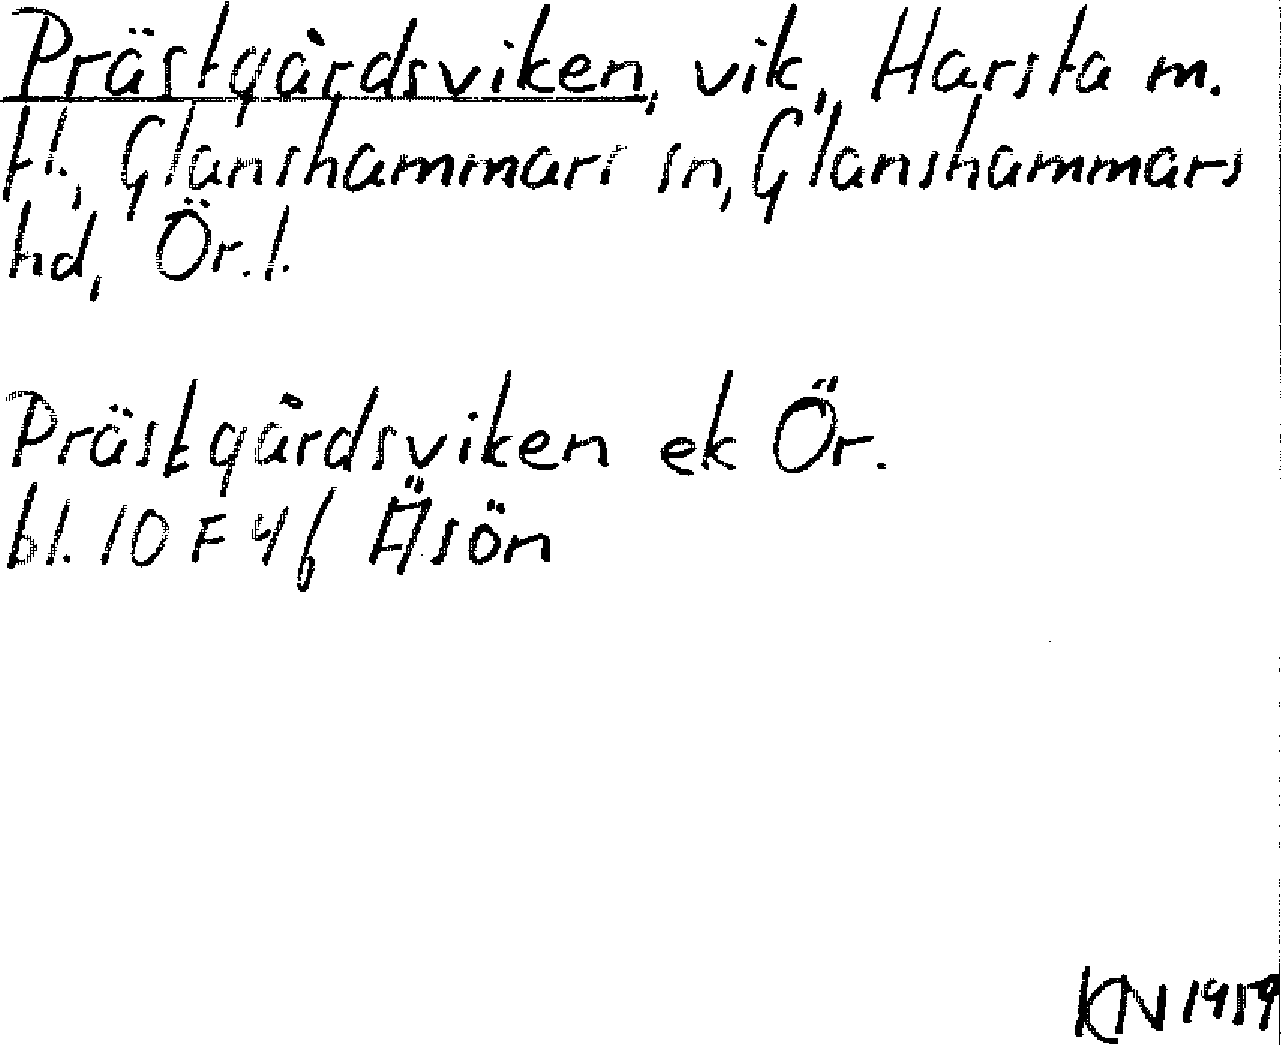 Prästgårdsviken, vik, Harsta m.
fl., Glanshammars sn, Glanshammars
hd, Ör. l.
Prästgårdsviken ek Ör.
bl. 10 F 4 f Äsön
KN 1959